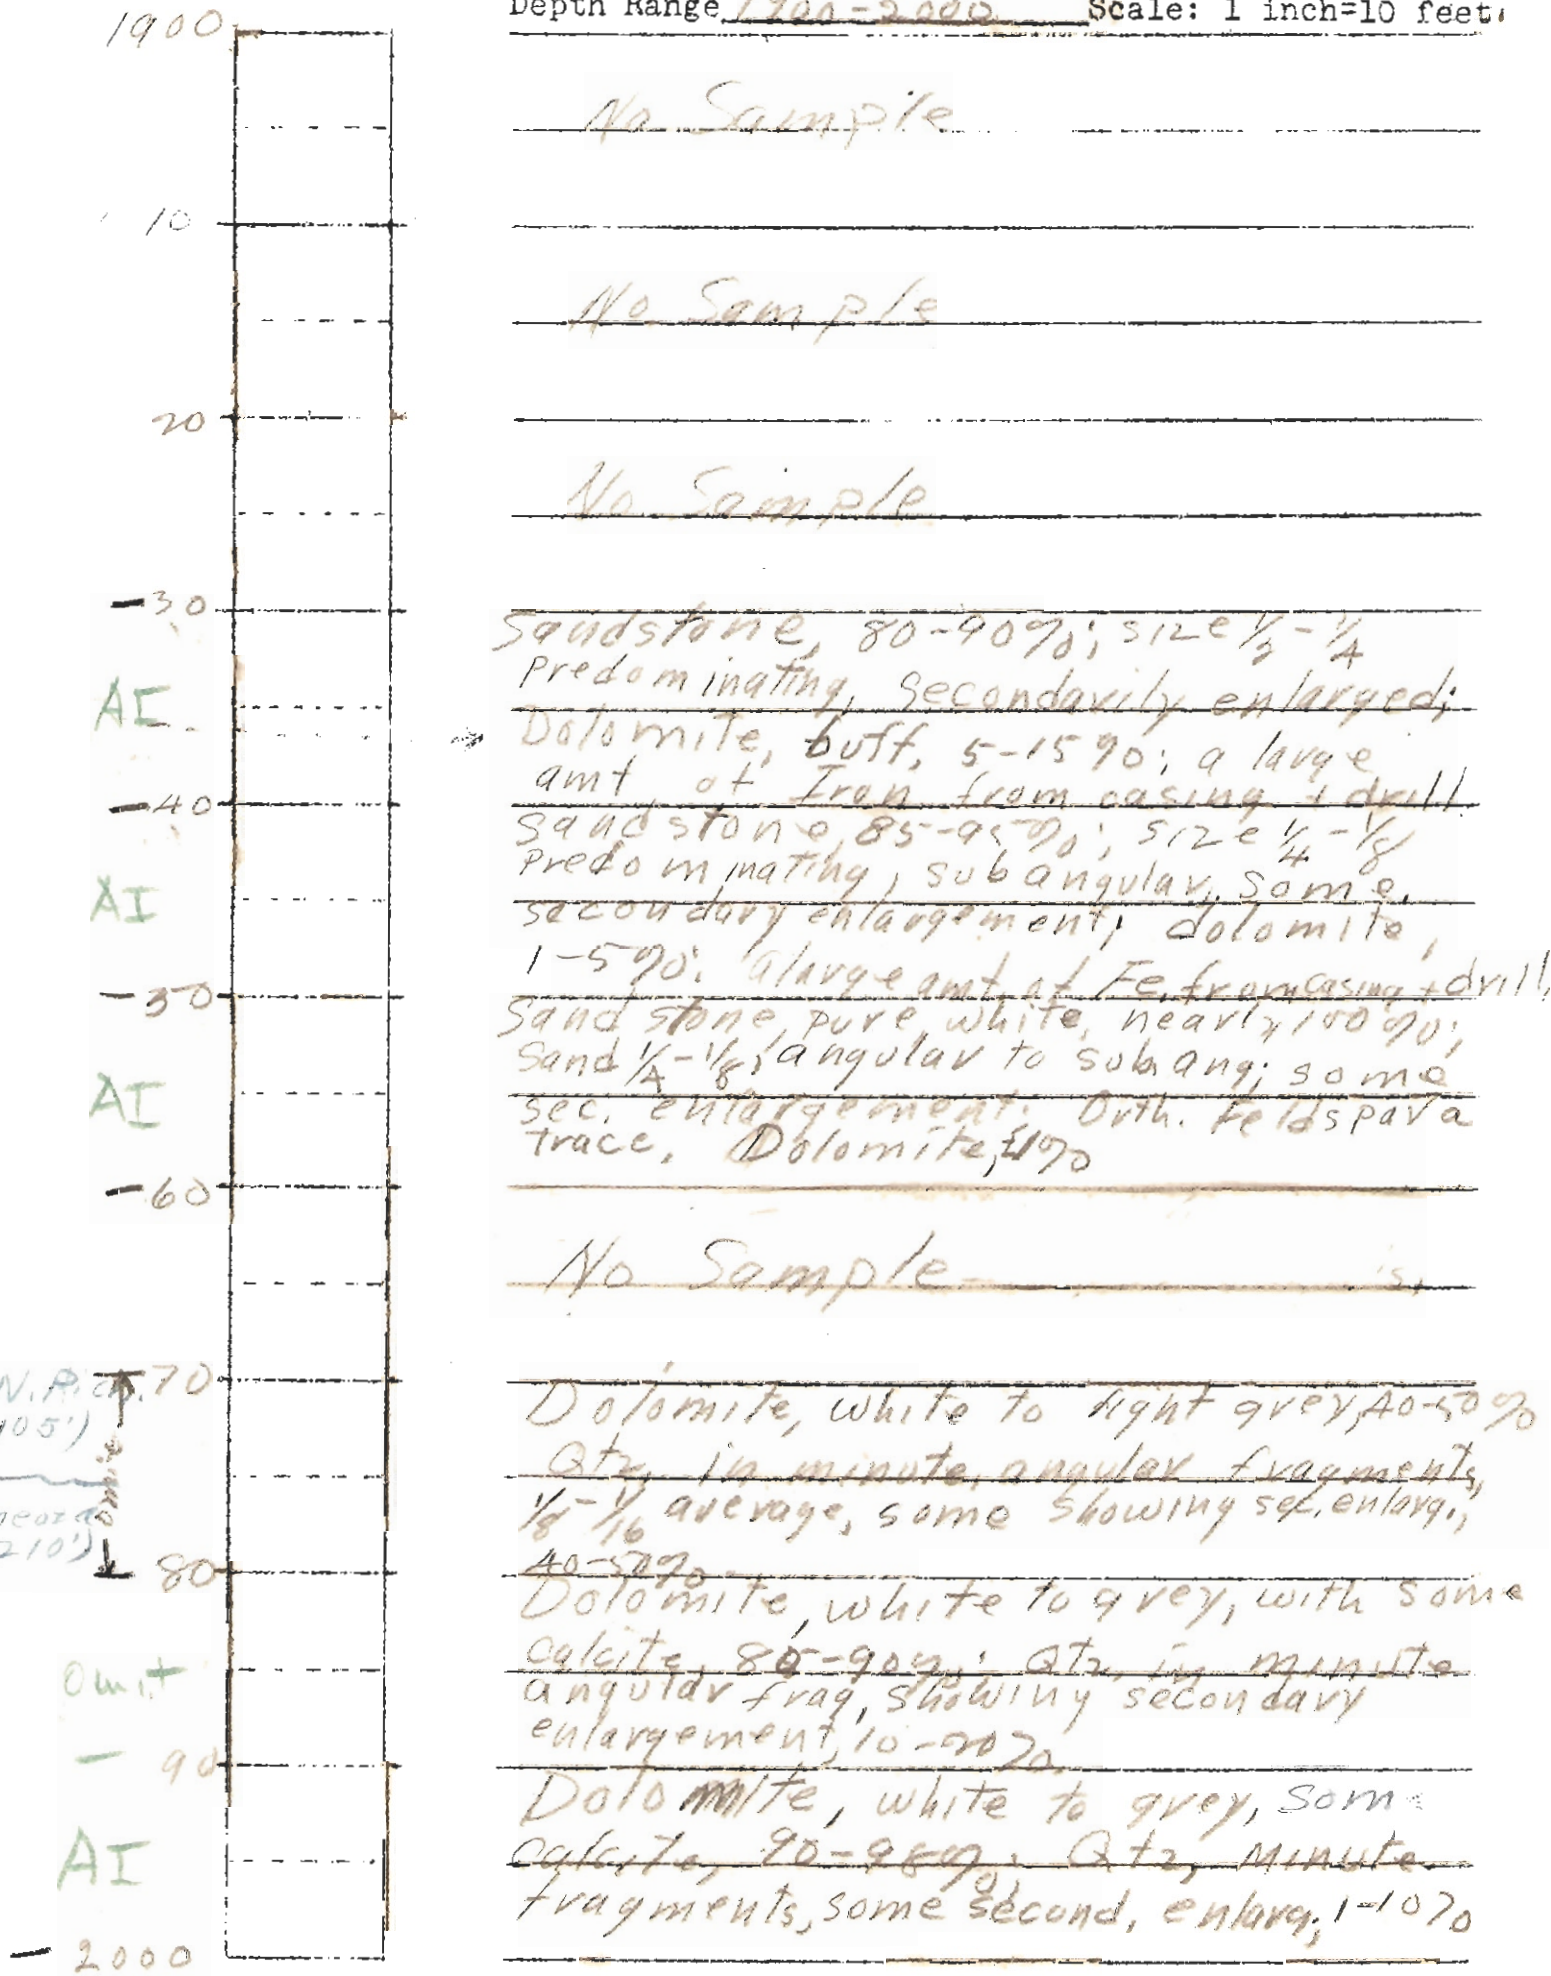 Depth Range 1900-2000 Scale: 1 inch=10 feet.
1900
No Sample
10
No Sample
20
No Sample
-30
Sandstone, 80-90%; size 1/2-1/4
AI
Predominating, secondarily enlarged;
→ Dolomite, buff, 5-15%; a large
amt of Iron from casing + drill.
-40
Sandstone, 85-95%; size 1/4-1/8
Predominating, subangular, some
AI
secondary enlargement; dolomite,
1-5%; a large amt of Fe, from casing + drill,
-50
Sandstone, pure, white, nearly 100%;
Sand 1/4-1/8; angular to subang; some
AI
sec. enlargement. Orth. Feldspar a
trace. Dolomite, ±1%
-60
No Sample
N. Rich.
70
105')
Dolomite, white to light grey, 40-50%
Qtz, in minute, angular fragments,
1/8-1/16 average, some showing sec. enlarg.,
210')
Omit
80
40-50%
Dolomite, white to grey, with some
Omit
calcite, 80-90%; Qtz, in minute
angular frag, showing secondary
enlargement, 10-20%
- 90
Dolomite, white to grey, some
AI
calcite, 90-98%; Qtz, Minute
fragments, some second, enlarg; 1-10%
- 2000